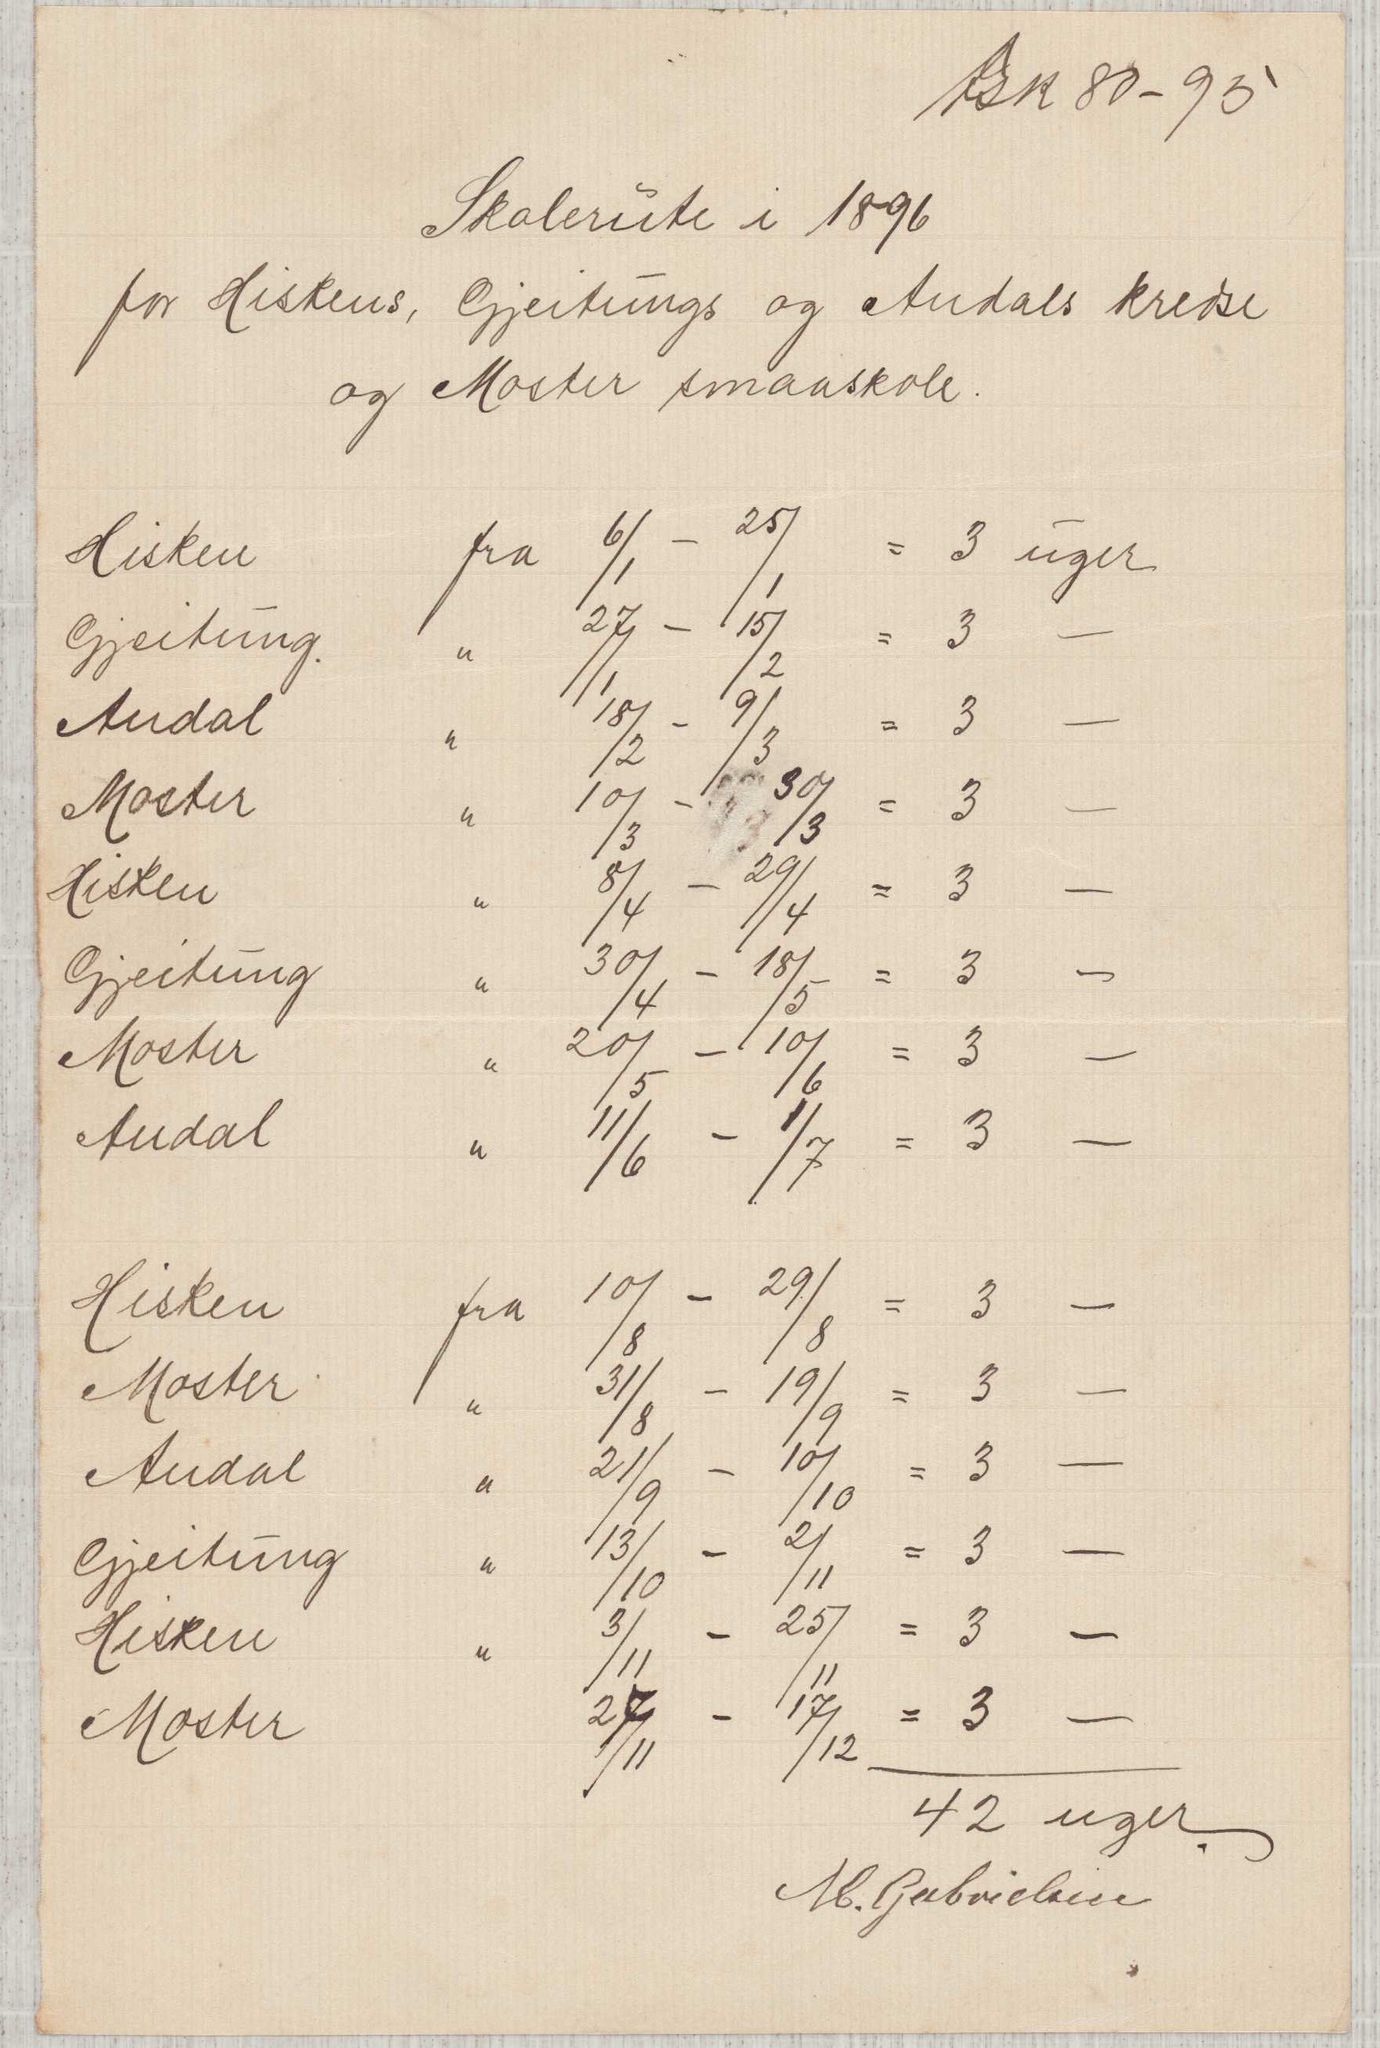 BSK 80-95
Skolerute i 1896
for Hiskens, Gjeitungs og Andals kredse
og Moster smaaskole.
Hisken fra 6/1 - 25/1 = 3 uger
Gjeitung. " 27/1 - 15/2 = 3 —
Andal " 18/2 - 9/3 = 3 —
Moster " 10/3 - 30/3 = 3 —
Hisken " 8/4 - 29/4 = 3 —
Gjeitung " 30/4 - 18/5 = 3 —
Moster " 20/5 - 10/6 = 3 —
Andal " 11/6 - 1/7 = 3 —
Hisken fra 10/8 - 29/8 = 3 —
Moster " 31/8 - 19/9 = 3 —
Andal " 21/9 - 10/10 = 3 —
Gjeitung " 13/10 - 2/11 = 3 —
Hisken " 3/11 - 25/11 = 3 —
Moster 27/11 - 17/12 = 3 —
42 uger.
M. Gabrielsen